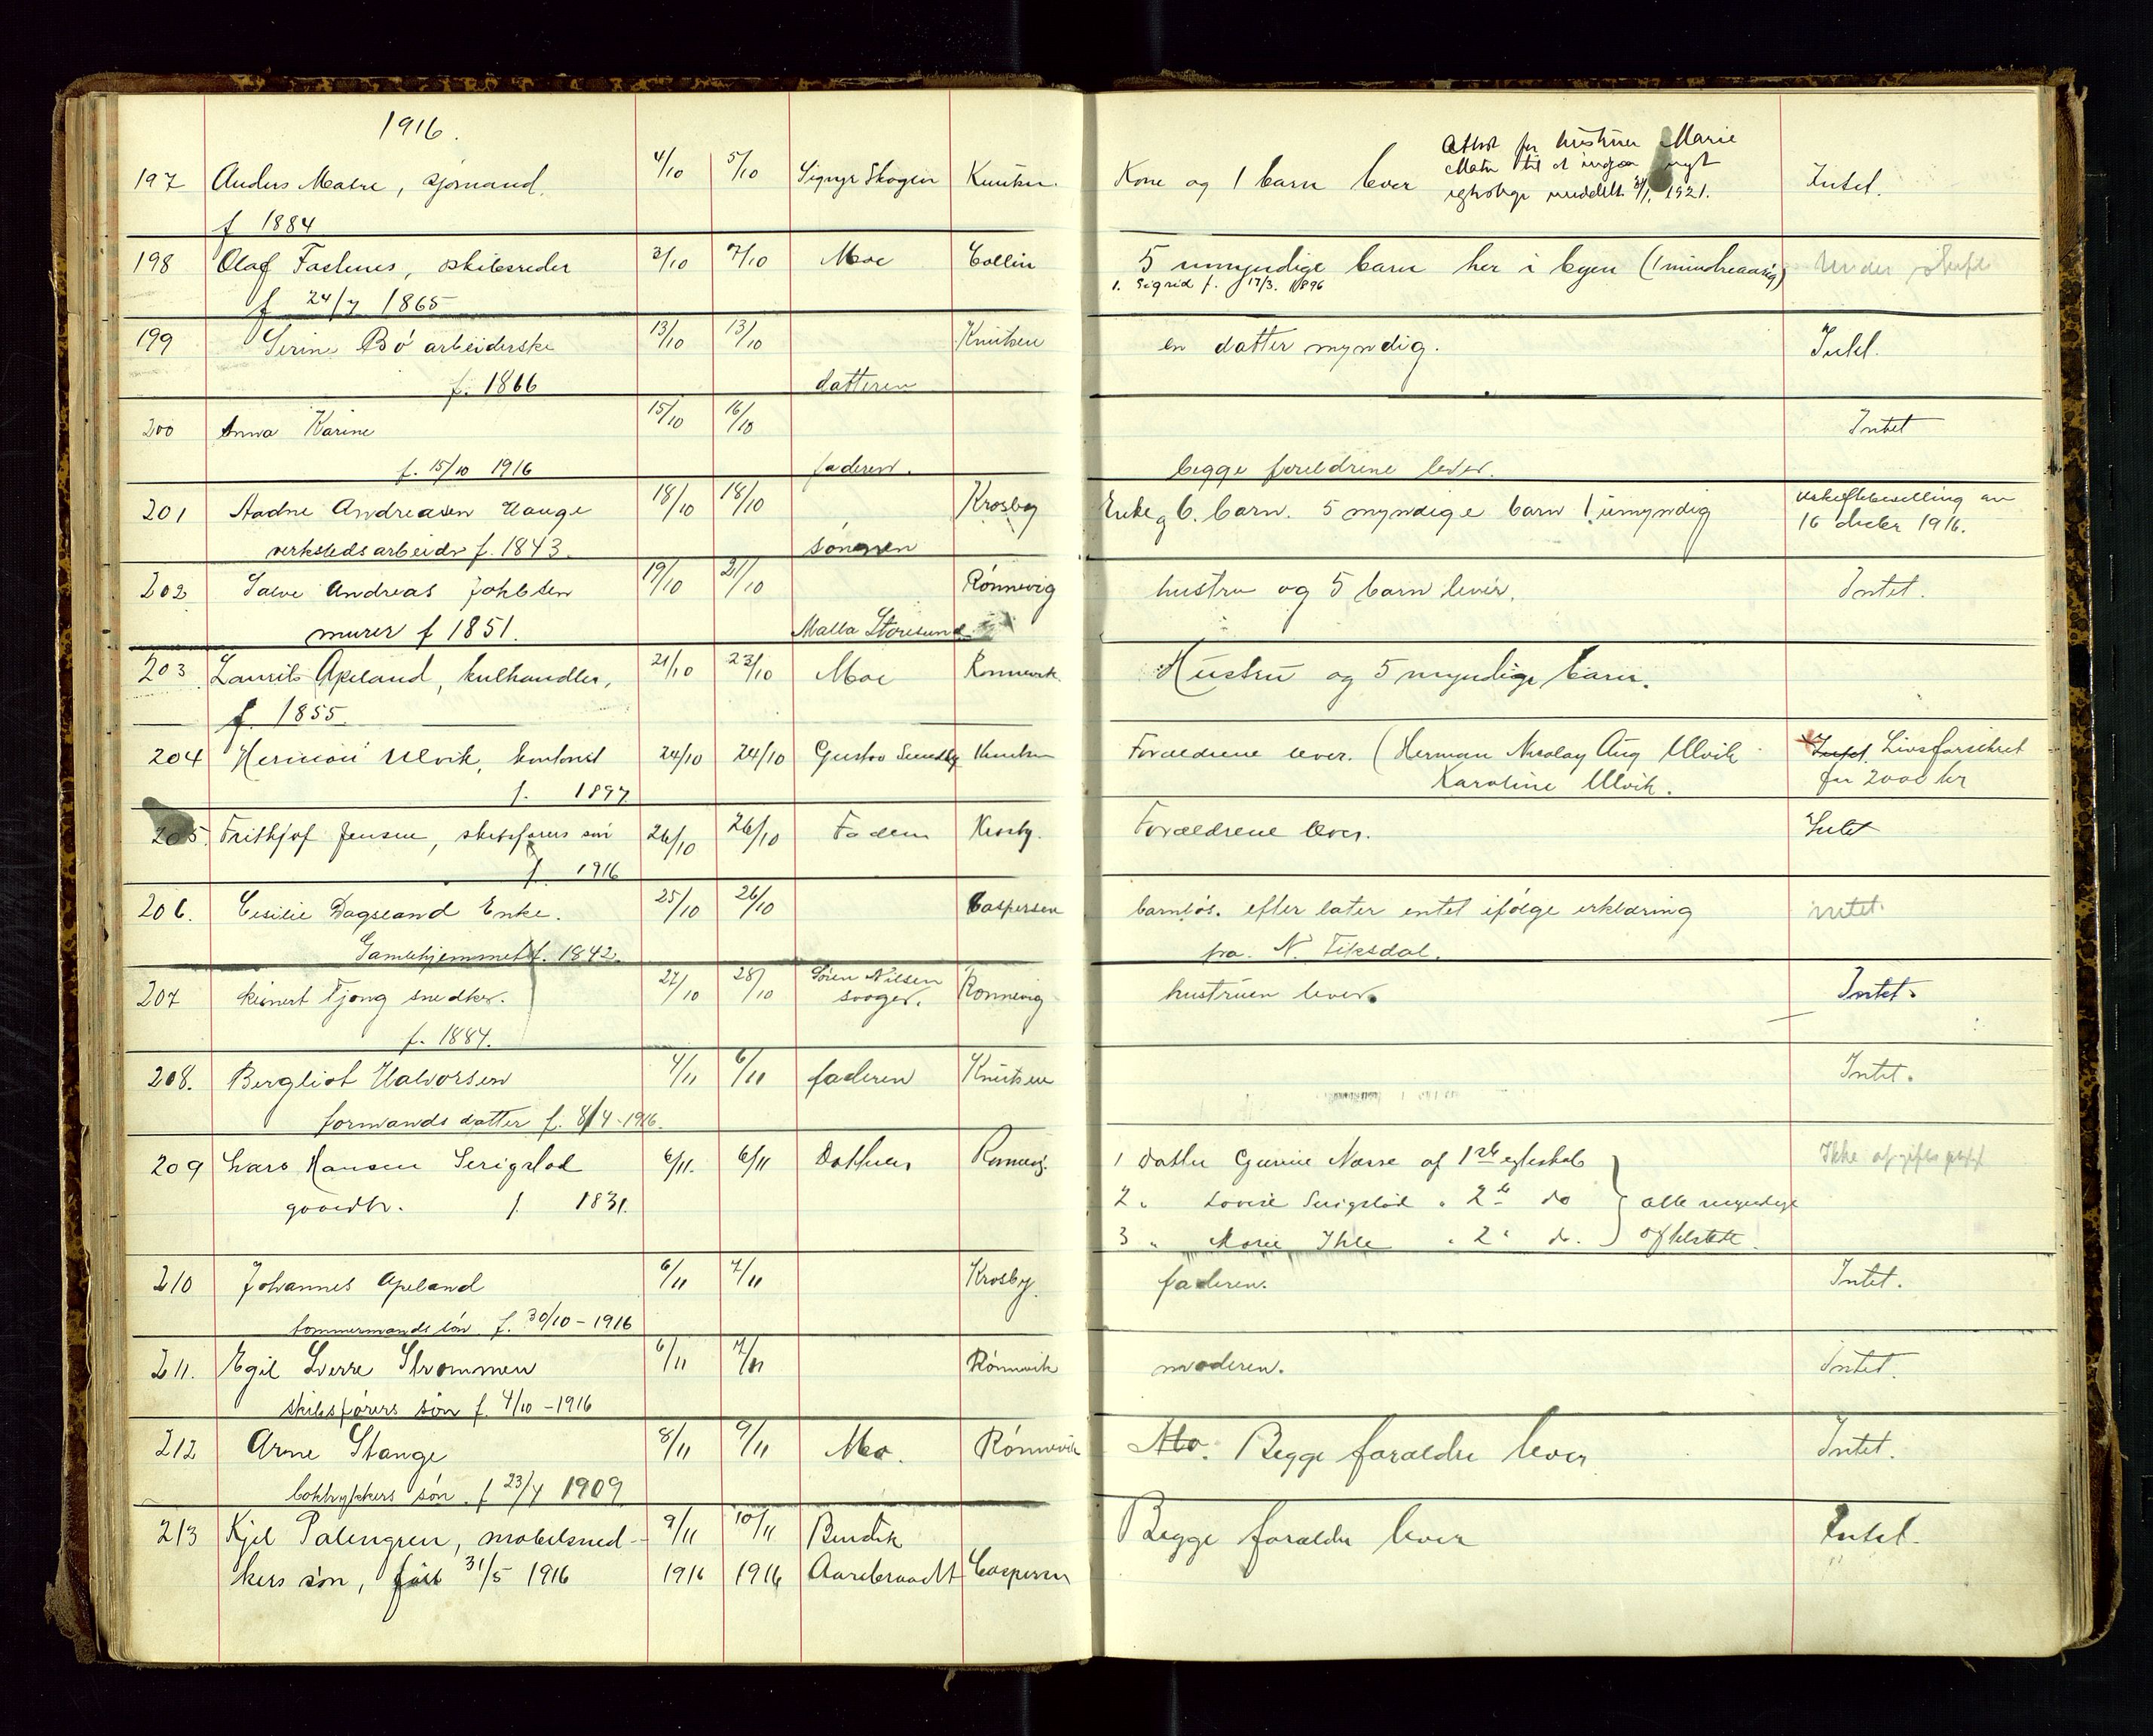 1916.
197 Anders Matre, sjømand. 4/10 5/10 Signy Skogen Knutsen. Kone og 1 barn lever Attest for hustruen Marie
Matre til at indgaa nyt
egteskap meddelt 1921. Intet.
f 1884
198 Olaf Fastnes, skibsreder 3/10 7/10 Moe Collin 5 umyndige barn her i byen (1 mindreaarig) Under skifte
f 24/7 1865 1. Sigrid f. 17/3. 1896
199 Serine Bö arbeiderske 13/10 13/10 Knutsen en datter myndig. Intet.
f. 1866 datteren
200 Anna Karine 15/10 16/10 Intet
f. 15/10 1916 faderen. begge foreldrene lever.
201 Aadne Andreasen Hauge 18/10 18/10 Krosby Enke og 6. barn. 5 myndige barn 1 umyndig
16 1916.
verkstedsarbeider f. 1843. sønnen
202 Salve Andreas Jakobsen 19/10 21/10 Rönnevig hustru og 5 barn lever. Intet.
murer f 1851. Malla Storesund
203 Laurits Apeland, kulhandler, 21/10 23/10 Moe Rönnevik Hustru og 5 myndige barn.
f. 1855.
204 Herman Ulvik, kontorist 24/10 24/10 Gustav Sundby Knutsen Forældrene lever. (Herman Nicolay Aug Ulvik Intet. Livsforsikret
f. 1897 Karoline Ulvik. for 2000 kr
205. Frithjof Jensen, skibsførers søn 26/10 26/10 Faderen Krosby. Forældrene lever. Intet
f. 1916
206. Cesilie Dagsland Enke. 25/10 26/10 Caspersen barnløs. efter later entet ifølge erklæring intet.
Gamlehjemmet f. 1842. fra. N. Tiksdal.
207 Reinert Tjong snedker. 27/10 28/10 Søren Nilsen
svoger. Rönnevig hustruen lever. Intet.
f. 1884.
208. Bergliot Halvorsen 4/11 6/11 faderen Knutsen Intet.
formands datter f. 8/4-1916.
209 Lars Hansen Serigstad 6/11. 6/11 Datteren Rönnevig 1 datter Gurine Næsse af 1ste egteskab Ikke afgifts pligt
gaardbr. f. 1831. 2 " Lovise Serigstad " 2de do alle myndige
3 " Marie Ihle " 2 " do.
210 Johannes Apeland 6/11 7/11 Krosby. faderen. Intet.
tommermands søn. f. 30/10-1916
211. Egil Sverre Strømmen 6/11 7/11 Rönnevik moderen. Intet.
skibsførers søn f. 4/10-1916
212 Arne Stange 8/11 9/11 Mo. Rönnevik Mo. Begge forældre lever Intet.
boktrykkers søn. f 23/4 1909
213 Kjel Palengren, møbelsned- 9/11 10/11 Bendik Begge forældre lever Intet.
kers søn, født 31/5 1916 1916 1916 Aarebraadt Caspersen